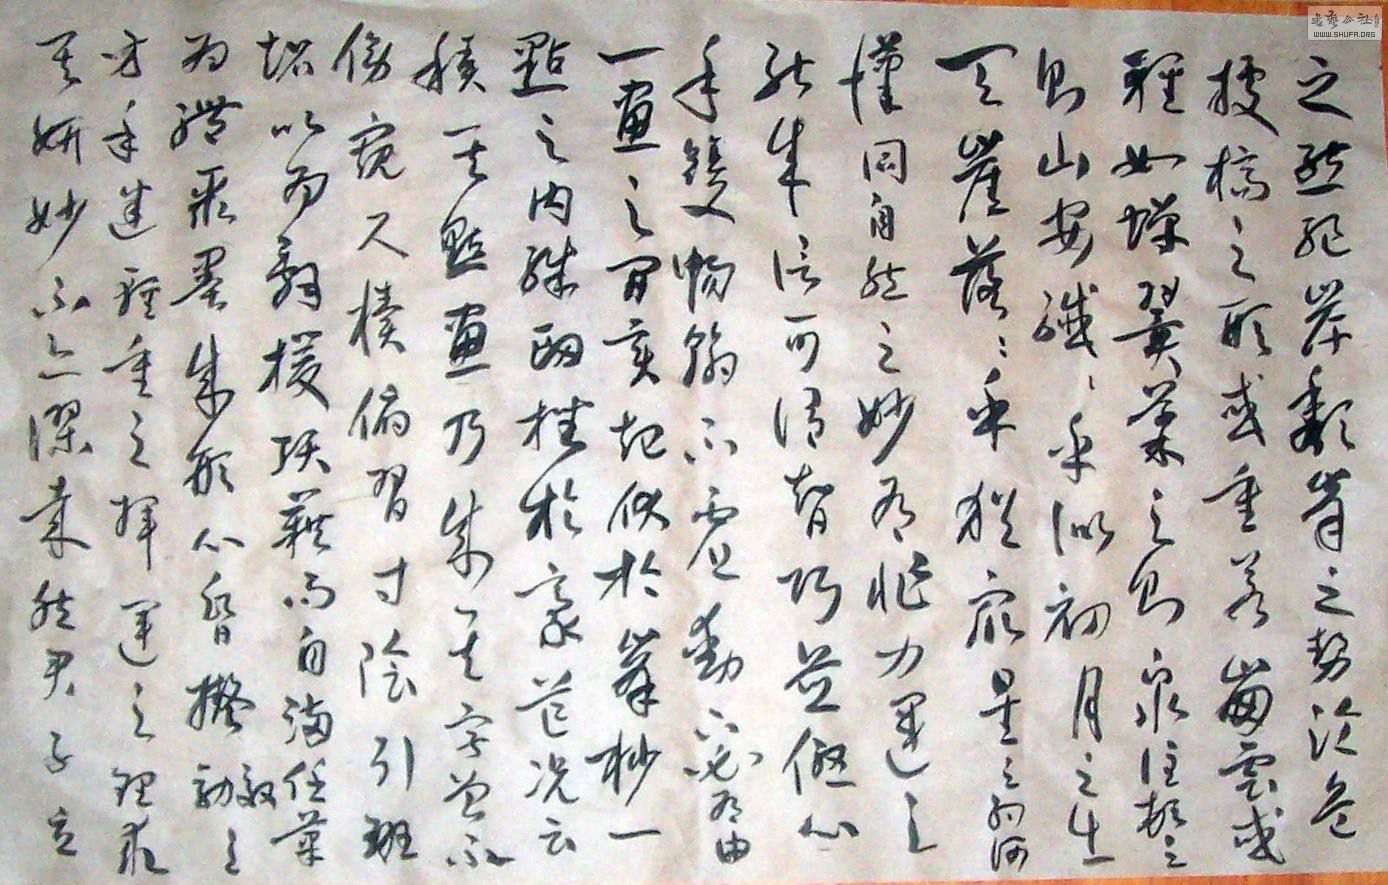 之態絕岸頹峯之勢臨危
據槁之形或重若崩雲或
輕如蟬翼導之則泉注頓之
則山安纖纖乎似初月之出
天崖落落乎猶眾星之列河
漢同自然之妙有非力運之
能成信可謂智巧兼優心
手雙暢翰不虛動下必有由
一畫之間變起伏於峯杪一
點之內殊衄挫於豪芒況云
積其點畫乃成其字曾不
傍窺尺櫝俯習寸陰引班
超以為辭援項籍而自滿任筆
為體聚墨成形心昏擬效之
方手迷輕重之揮運之理求
其妍妙不亦謬哉然君子立
書藝公社
WWW.SHUFA.ORG